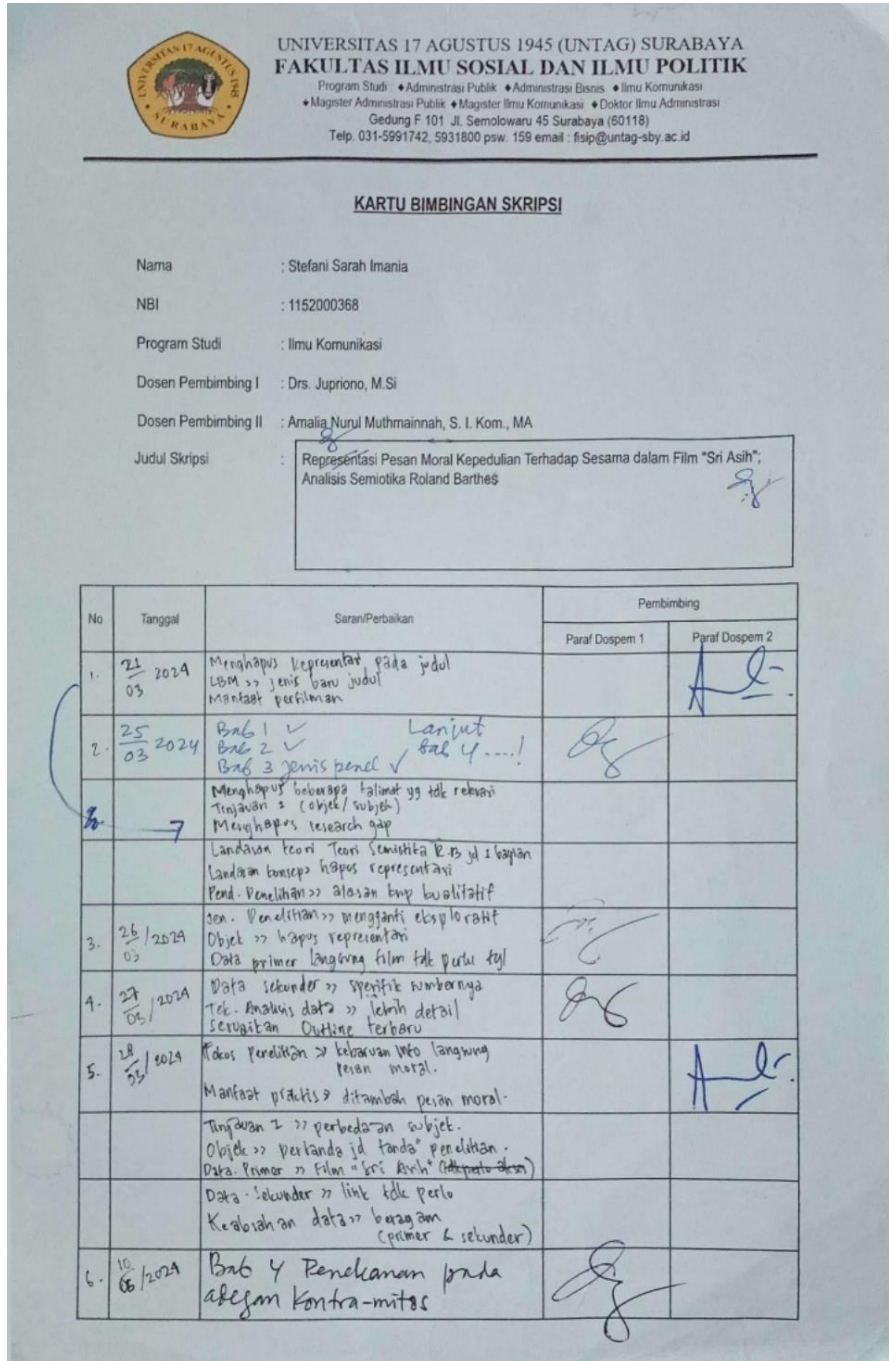 UNIVERSITAS 17 AGUSTUS 1945
SURABAYA
UNIVERSITAS 17 AGUSTUS 1945 (UNTAG) SURABAYA
FAKULTAS ILMU SOSIAL DAN ILMU POLITIK
Program Studi : ♦Administrasi Publik ♦Administrasi Bisnis ♦Ilmu Komunikasi
♦Magister Administrasi Publik ♦Magister Ilmu Komunikasi ♦Doktor Ilmu Administrasi
Gedung F 101 Jl. Semolowaru 45 Surabaya (60118)
Telp. 031-5991742, 5931800 psw. 159 email : fisip@untag-sby.ac.id
KARTU BIMBINGAN SKRIPSI
Nama : Stefani Sarah Imania
NBI : 1152000368
Program Studi : Ilmu Komunikasi
Dosen Pembimbing I : Drs. Jupriono, M.Si
Dosen Pembimbing II : Amalia Nurul Muthmainnah, S. I. Kom., MA
Judul Skripsi : Representasi Pesan Moral Kepedulian Terhadap Sesama dalam Film "Sri Asih";
Analisis Semiotika Roland Barthes
No Tanggal Saran/Perbaikan Pembimbing
Paraf Dospem 1 Paraf Dospem 2
1. 21/03 2024 Menghapus Representasi pada judul
LBM >> jenis baru judul
Manfaat perfilman
2. 25/03 2024 Bab 1 ✓ Lanjut
Bab 2 ✓ Bab 4 ....!
Bab 3 jenis penel ✓
Menghapus beberapa kalimat yg tdk relevan
Tinjauan : (objek/subjek)
Menghapus research gap
Landasan teori Teori Semiotika R.B jd 1 bagian
Landasan konsep> hapus representasi
Pend. Penelitian >> alasan knp kualitatif
Jen. Penelitian >> mengganti eksploratif
3. 26/03/2024 Objek >> hapus representasi
Data primer langsung film tdk perlu tgl
4. 27/03/2024 Data sekunder >> spesifik sumbernya
Tek. Analisis data >> lebih detail
Sesuaikan Outline terbaru
5. 28/03/2024 Fokus penelitian >> kebaruan info langsung
pesan moral.
Manfaat praktis> ditambah pesan moral.
Tinjauan 1 >> perbedaan subjek.
Objek >> pertanda jd tanda" penelitian.
Data. Primer >> Film "Sri Asih" (tdk perlu akses)
Data. Sekunder >> link tdk perlu
Keabsahan data >> beragam
(primer & sekunder)
6. 10/06/2024 Bab 4 Penekanan pada
adegan kontra-mitos